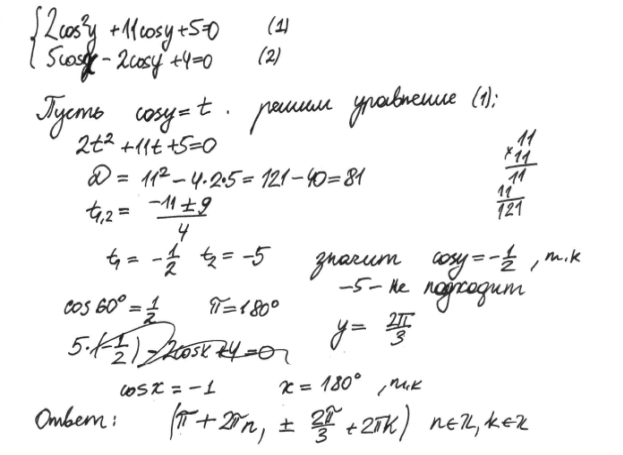 {2cos²y + 11cosy + 5 = 0 (1)
5cosx - 2cosy + 4 = 0 (2)
Пусть cosy = t. решим уравнение (1):
2t² + 11t + 5 = 0
D = 11² - 4·2·5 = 121 - 40 = 81
11
×11
11
11
121
t₁,₂ = (-11 ± 9)/4
t₁ = -1/2 t₂ = -5 значит cosy = -1/2, т.к
-5 - не подходит
cos 60° = 1/2 π = 180° y = 2π/3
5·(-1/2) - 2cosx + 4 = 0
cosx = -1 x = 180°, т.к
Ответ: (π + 2πn, ± 2π/3 + 2πk) n∈ℤ, k∈ℤ